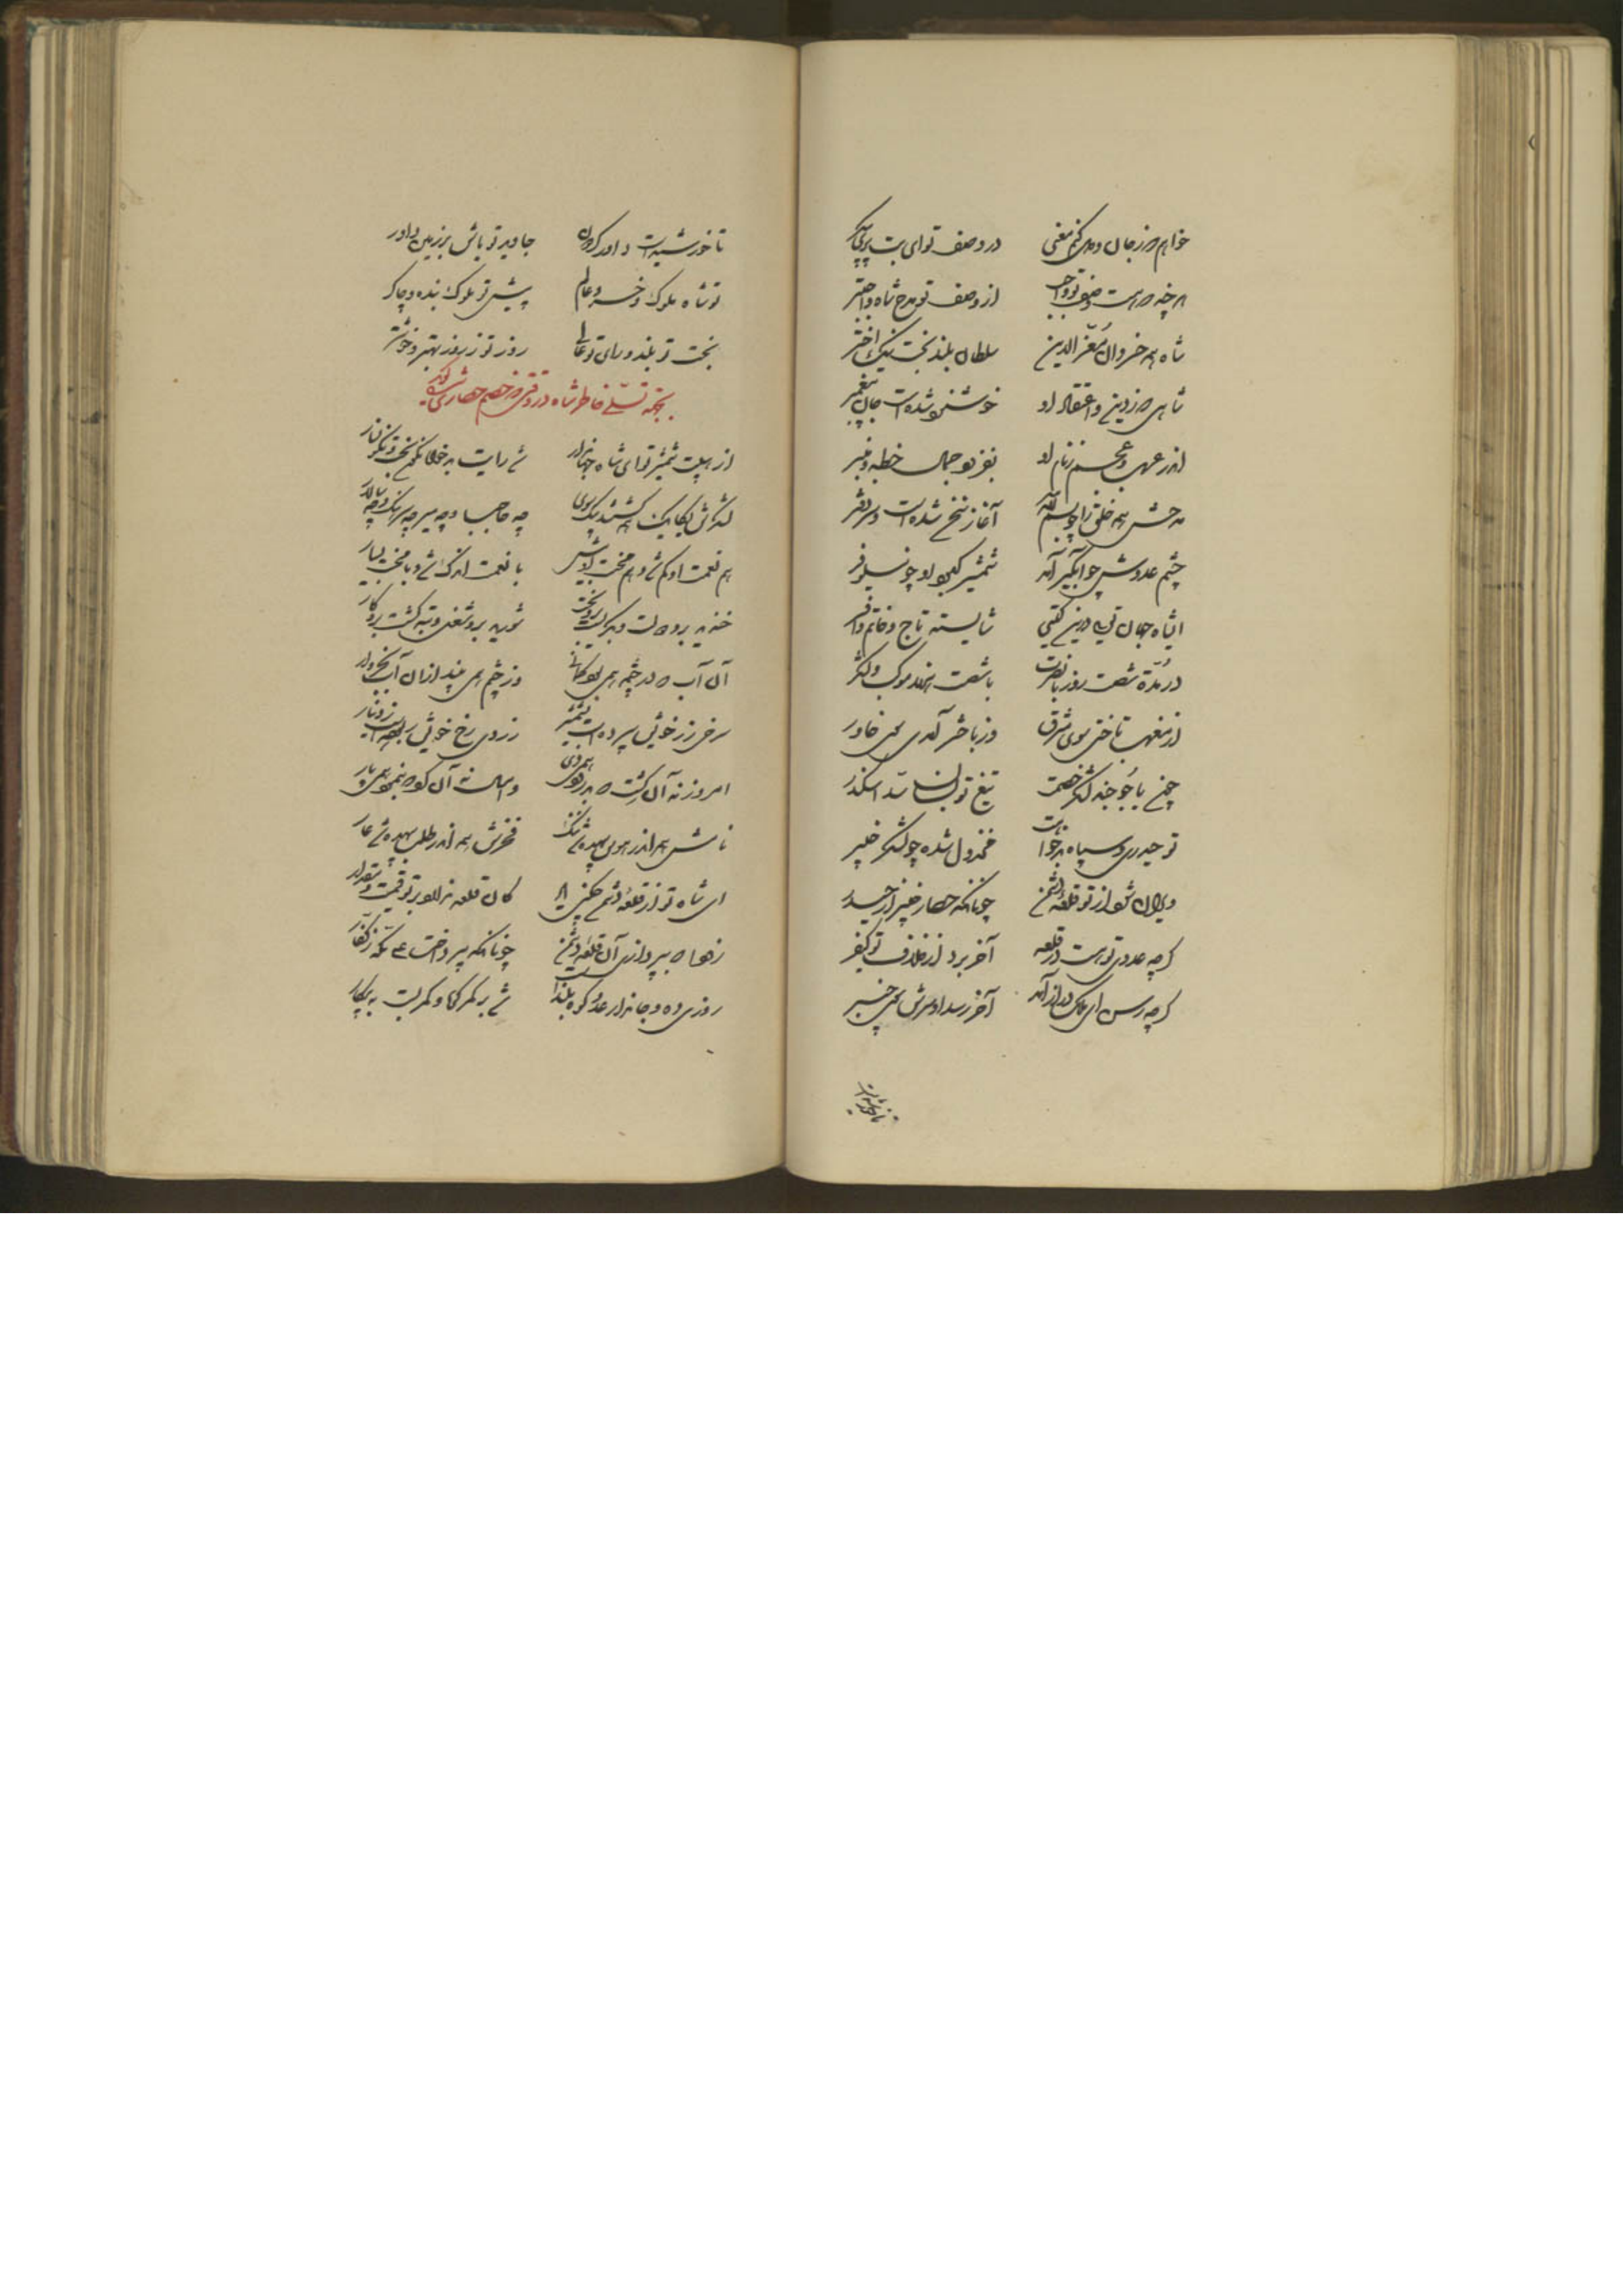 خواهم که ز جان و دل کنم معنی در وصف تو ای بت پری پیکر
هر چند که هست وصف تو واجب از وصف تو مدح شاه واجبتر
شاه همه خسروان معز الدین سلطان بلند بخت نیک اختر
شاهی که ز دین و اعتقاد او خوشنود شده است جان پیغمبر
اندر عرب و عجم ز نام او بفزود جمال خطبه و منبر
مدحش همه خلق را چو بسم الله آغاز شده است دفتر
چشم عدوش چو آبگیر آمد شمشیر کبود او چو نیلوفر
ای شاه جهان توئی درین گیتی شایسته تاج و خاتم و افسر
در مدة شصت روز با نصرت با شصت هزار موکب و لشکر
از مغرب تاختی سوی مشرق وز باختر آمدی سوی خاور
چون یاجوجند لشکر خصمت تیغ تو بسان سد اسکندر
تو حیدری و سپاه بدخواهت مخذول شده چو لشکر خیبر
ویران شود از تو قلعه دشمن چونانکه حصار خیبر از حیدر
گرچه عدوی تو هست در قلعه آخر برد از خلاف تو کیفر
گرچه رسن ای ملک دراز آمد آخر رسد او سرش سوی چنبر
تا خورشید است
تا خورشید است داور گردون جاوید تو باش بر زمین داور
تو شاه ملوک و خسرو عالم پیش تو ملوک بنده و چاکر
بخت تو بلند و رای تو عالی روز تو ز روز بهتر و خوشتر
بجهة تسلی خاطر شاه در وقتی که خصم حصاری شده بود گوید
از هیبت شمشیر تو ای شاه جهاندار شد رایت بدخواه نگون بخت نگونسار
لشکرش یکایک همه گشتند بیک سوی چه حاجب و چه میر چه سرهنگ و چه سالار
هم نعمت او کم شد و هم محنت او بیش با نعمت اندک شد و با محنت بسیار
خندید برو دولت و برگشت ازو بخت شورید برو شغل و تبه گشت برو کار
آن آب که در چشمه همی بود وز چشم همی بیند ازان آب
سرخی ز رخ خویش سپرده است بشمشیر زردی رخ خویش بدینار
امروز نه آن کشت که بدرود همی دی و امسال نه آن گوید همی پار
نامش همه اندر هوس بیهده شد ننگ فخرش همه اندر طلب بیهده شد عار
ای شاه تو از قلعه دشمن چکنی یاد کان قلعه ندارد بر تو قیمت و مقدار
زودا که بپردازی آن قلعه ز دشمن چونانکه بپرداخت علی مکه ز کفار
روزی ده و جاندار عدو کوه بلند است شد بر کمر کوه و کمر بست به پیکار